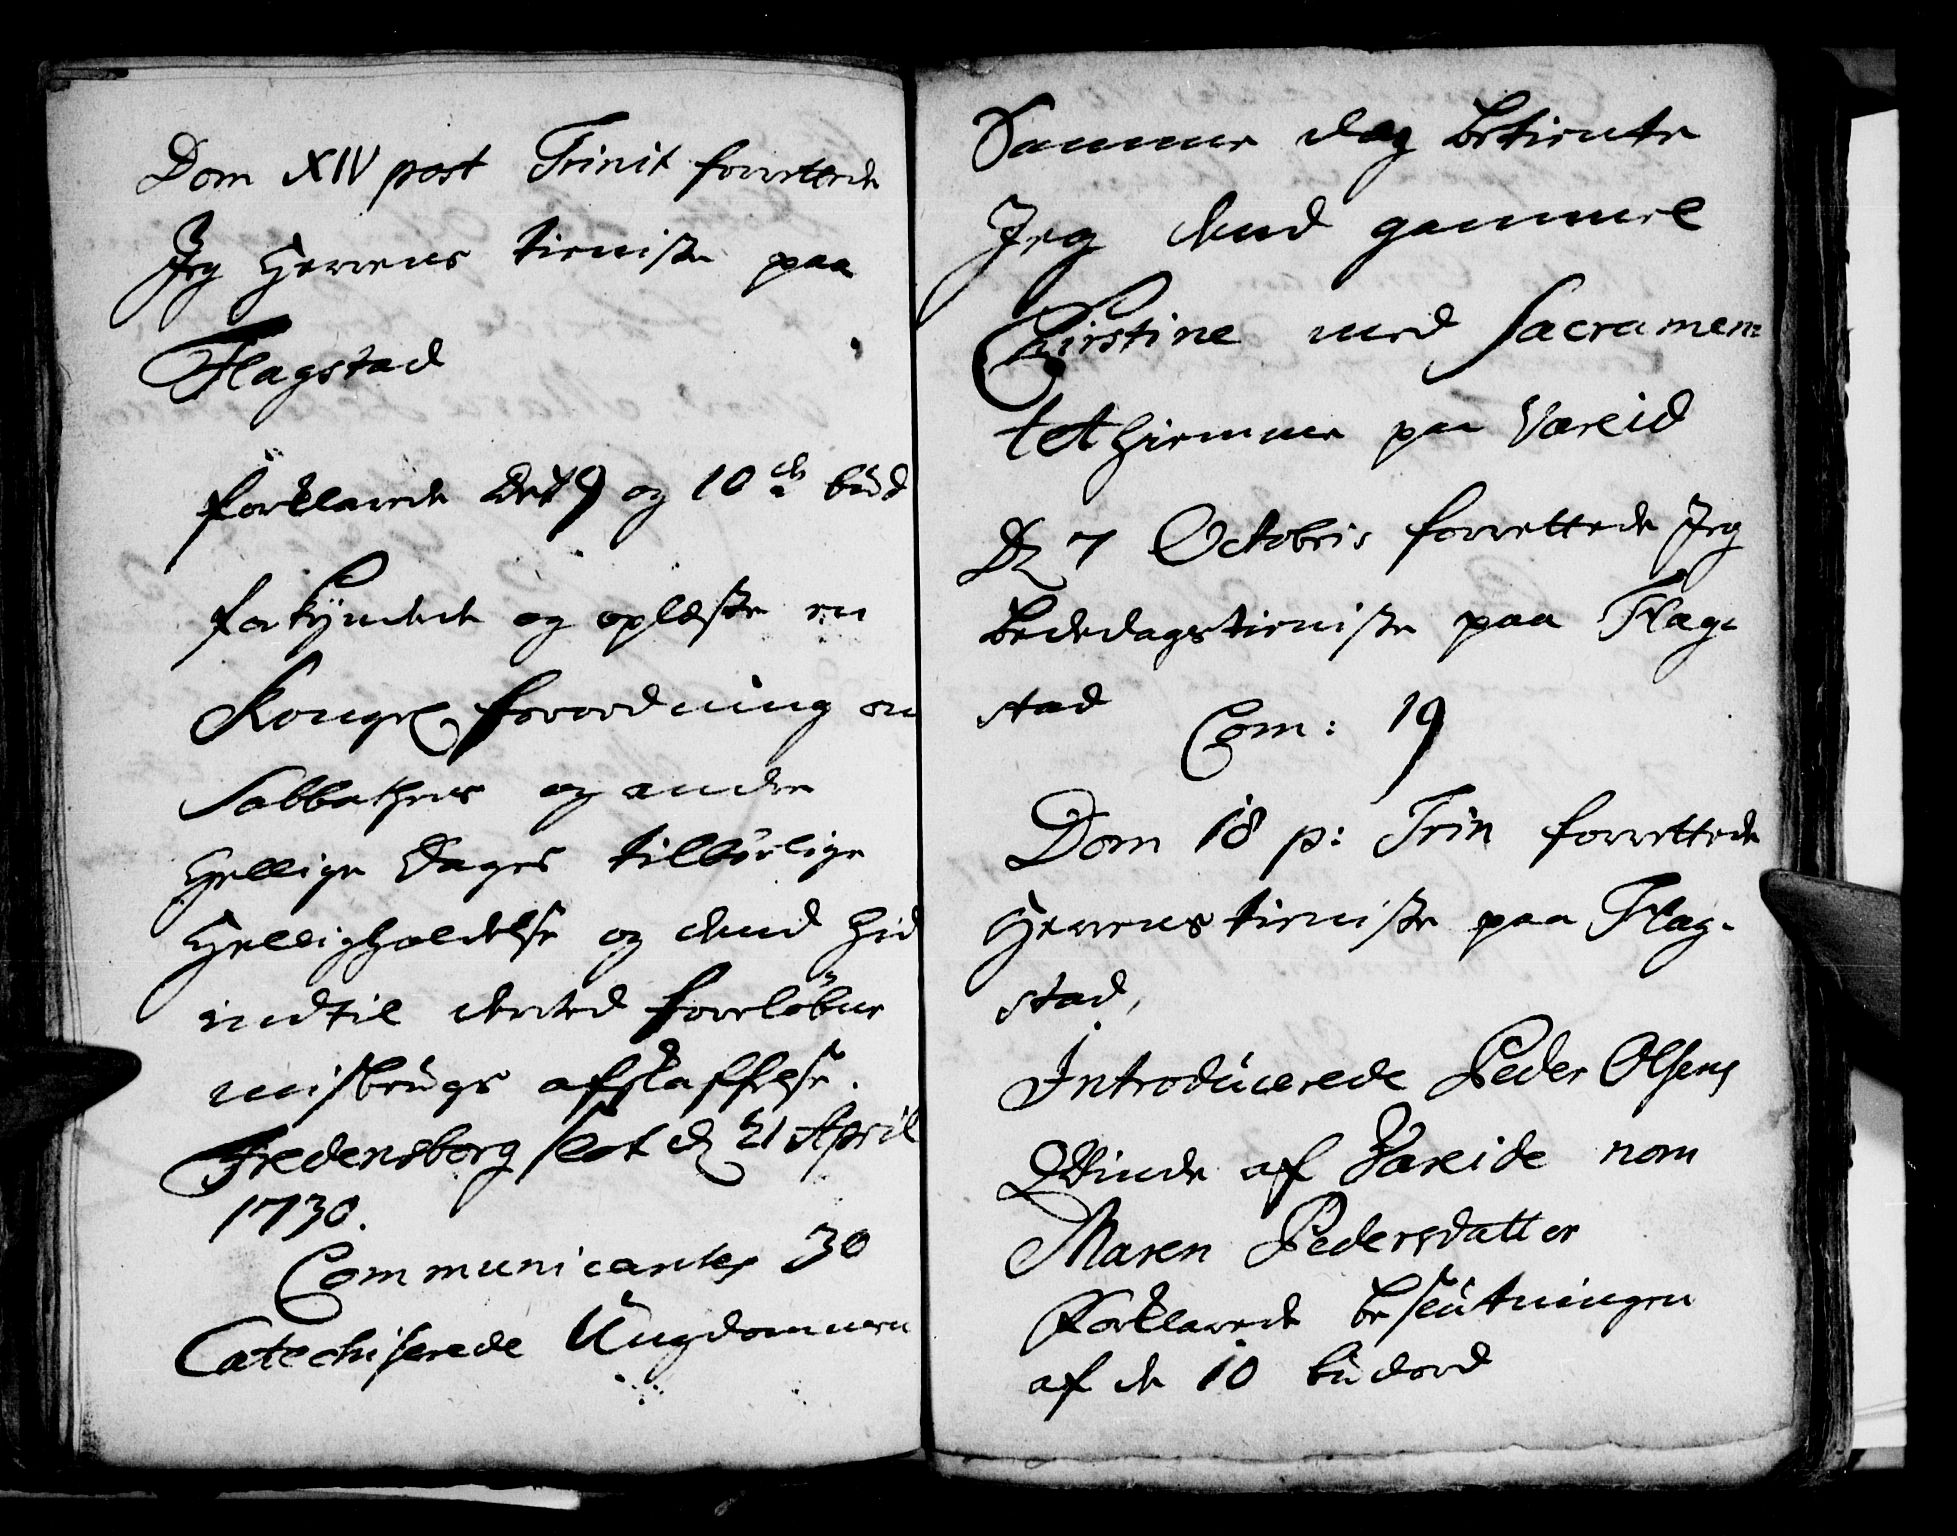 Dom XIV post Trinit forrettede
Jeg Herrens tieniste paa
Flagstad
forklarede Det 9 og 10de bud
forkyndede og oplæste en
Kongel forordning om
Sabbathens og andre
Hellige Dages tilbørlige
Helligholdelse og dend hid
indtil derved foreløbne
misbrugs afskaffelse.
Fredensborg slot d 21 April
1730.
Communicantes 30
Catechiserede Ungdommen
Samme dag betiente
Jeg dend gammel
Kirstine med Sacramen:
tet hiemme paa Vareid
D 7 Octobris forrettede Jeg
bededagstieniste paa Flag-
stad
Com: 19
Dom 18 p: Trin forrettede
Herrens tieniste paa Flag-
stad,
Introducerede Peder Olsens
Qvinde af Vareide nom
Maren Pedersdatter
Forklarede beslutningen
af de 10 budord